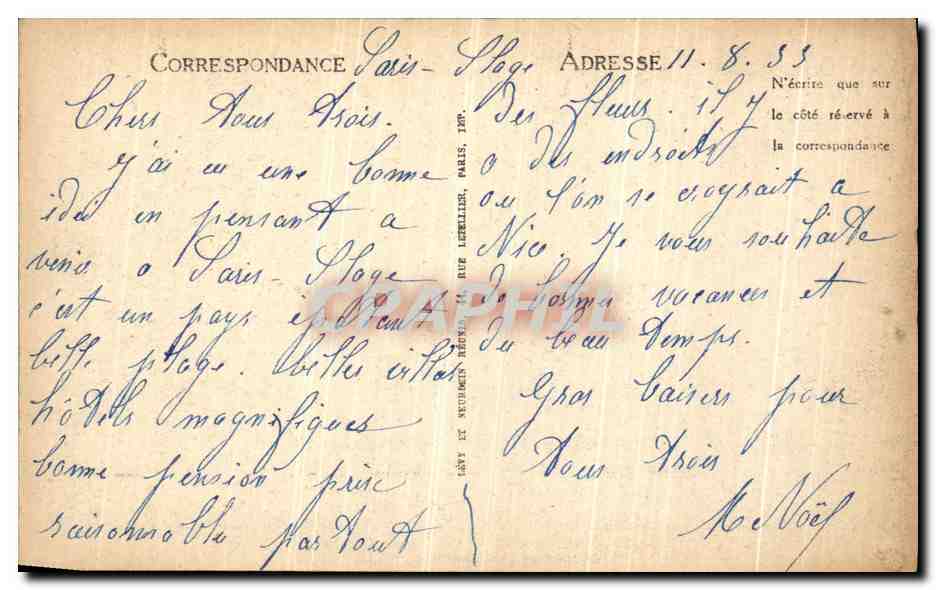 CORRESPONDANCE Paris-Plage ADRESSE 11.8.33
N'écrire que sur
le côté réservé à
la correspondance
Chers tous trois.
J'ai eu une bonne
idée en pensant a
venir a Paris-Plage
c'est un pays épatant
belle plage. belles villas
hôtels magnifiques
bonne pension prix
raisonnable partout
LÉVY ET NEURDEIN RÉUNIS, 44, RUE LETELLIER, PARIS, IMP.
des fleurs. il y
a des endroits
ou l'on se croyrait a
Nice. Je vous souhaite
de bonne vacances et
du beau temps.
Gros baisers pour
tous trois
Me Noël
CPAPHIL